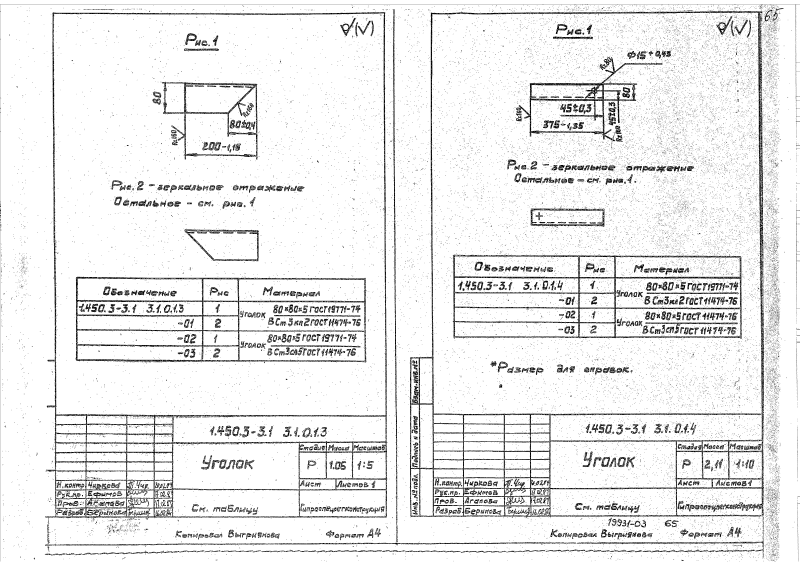 Рис.1
(√)
80
Rz160
80±0,4
Rz160
200-1,15
Рис.2 - зеркальное отражение
Остальное - см. рис.1
Обозначение Рис Материал
1.450.3-3.1 3.1.0.1.3 1 Уголок 80×80×5 ГОСТ 19771-74
-01 2 ВСт3кп2 ГОСТ 11474-76
-02 1 Уголок 80×80×5 ГОСТ 19771-74
-03 2 ВСт3сп5 ГОСТ 11474-76
1.450.3-3.1 3.1.0.1.3
Уголок
Стадия Масса Масштаб
Р 1.05 1:5
Лист Листов 1
Н.контр. Чиркова
Рук.пр. Ефимов
Пров. Агапова
Разраб. Беринова
См. таблицу
Гипроспецлегконструкция
Копировал Выгриянова Формат А4
65
Рис.1
(√)
Rz80
Ф15+0,43
80
Rz160
45±0,3
45±0,3
Rz160
375-1,35
Рис.2 - зеркальное отражение
Остальное - см. рис.1.
Обозначение Рис Материал
1.450.3-3.1 3.1.0.1.4 1 Уголок 80×80×5 ГОСТ 19771-74
-01 2 ВСт3кп2 ГОСТ 11474-76
-02 1 Уголок 80×80×5 ГОСТ 11474-76
-03 2 ВСт3сп5 ГОСТ 11474-76
*Размер для справок.
Взам.инв.№
Подпись и дата
Инв.№ подл.
1.450.3-3.1 3.1.0.1.4
Уголок
Стадия Масса Масштаб
Р 2,11 1:10
Лист Листов 1
Н.контр. Чиркова
Рук.пр. Ефимов
Пров. Агапова
Разраб. Беринова
См. таблицу
Гипроспецлегконструкция
19931-03 65
Копировал Выгриянова Формат А4